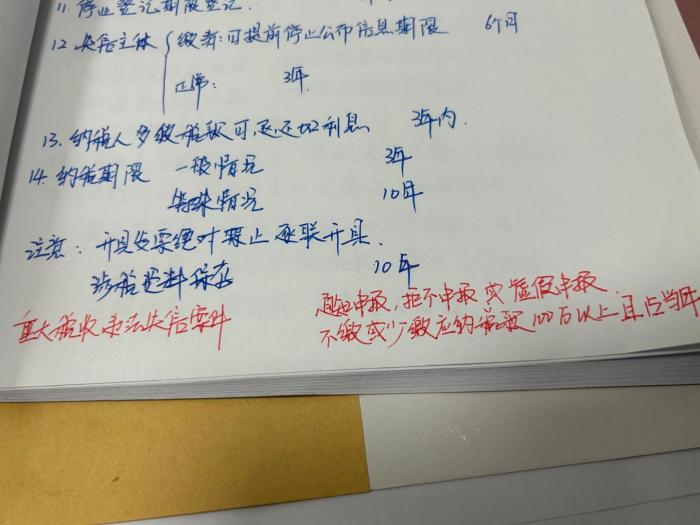 11. 停业登记期限登记.
12 失信主体 缴齐:可提前停止公布信息期限 6个月
正常: 3年
13. 纳税人多缴税款可退还加利息 3年内.
14. 纳税期限 一般情况 3年
特殊情况 10年
注意: 开具发票绝对禁止逐联开具.
涉税资料保存 10年
重大税收违法失信案件
申报, 拒不申报 或 虚假申报
不缴或少缴应纳税款 100万以上 且占当年